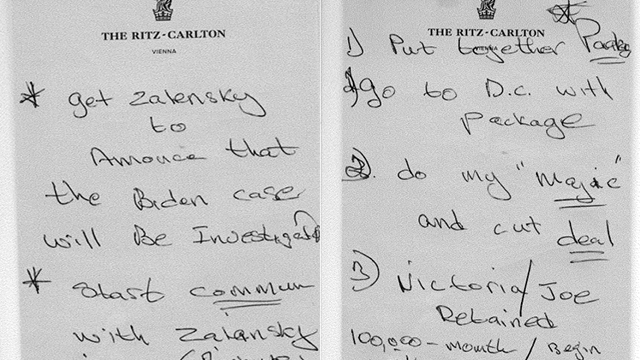 THE RITZ-CARLTON
VIENNA
* get Zalensky
to
Annouce that
the Biden case
will Be Investigated
* Start commun
with Zalansky
THE RITZ-CARLTON
1) Put together
go to D.C. with
package
2. do my "magic"
and cut deal
3) Victoria / Joe
Retained
100,000 - month / Begin